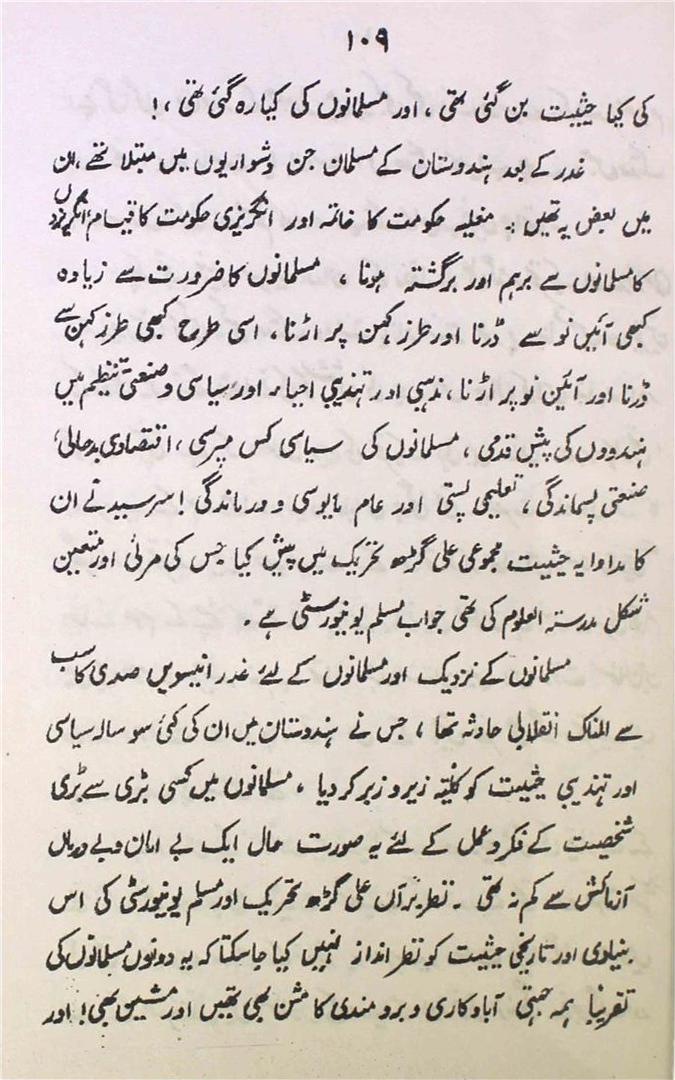 ۱۰۹
کی کیا حیثیت بن گئی تھی، اور مسلمانوں کی کیا رہ گئی تھی،!
غدر کے بعد ہندوستان کے مسلمان جن دشواریوں میں مبتلا تھے، ان
میں بعض یہ تھیں:۔ مغلیہ حکومت کا خاتمہ اور انگریزی حکومت کا قیام، انگریزوں
کا مسلمانوں سے برہم اور برگشتہ ہونا، مسلمانوں کا ضرورت سے زیادہ
کبھی آئین نو سے ڈرنا اور طرز کہن پر اڑنا، اسی طرح کبھی طرز کہن سے
ڈرنا اور آئین نو پر اڑنا، مذہبی اور تہذیبی احیاء اور سیاسی و صنعتی تنظیم میں
ہندووں کی پیش قدمی، مسلمانوں کی سیاسی کس مپرسی، اقتصادی بدحالی،
صنعتی پسماندگی، تعلیمی پستی اور عام مایوسی و درماندگی! سرسید نے ان
کا مداوا بہ حیثیت مجموعی علی گڑھ تحریک میں پیش کیا جس کی مرئی اور متعین
شکل مدرستہ العلوم کی تھی جواب مسلم یونیورسٹی ہے۔
مسلمانوں کے نزدیک اور مسلمانوں کے لئے غدر انیسویں صدی کا سب
سے المناک انقلابی حادثہ تھا، جس نے ہندوستان میں ان کی کئی سو سالہ سیاسی
اور تہذیبی حیثیت کو کلیتہ زیر و زبر کر دیا، مسلمانوں میں کسی بڑی سے بڑی
شخصیت کے فکر و عمل کے لئے یہ صورت حال ایک بے امان و بے درماں
آزمائش سے کم نہ تھی۔ نظر برآں علی گڑھ تحریک اور مسلم یونیورسٹی کی اس
بنیادی اور تاریخی حیثیت کو نظر انداز نہیں کیا جاسکتا کہ یہ دونوں مسلمانوں کی
تقریباً ہمہ جہتی آبادکاری و برومندی کا مشن بھی تھیں اور مشین بھی! اور